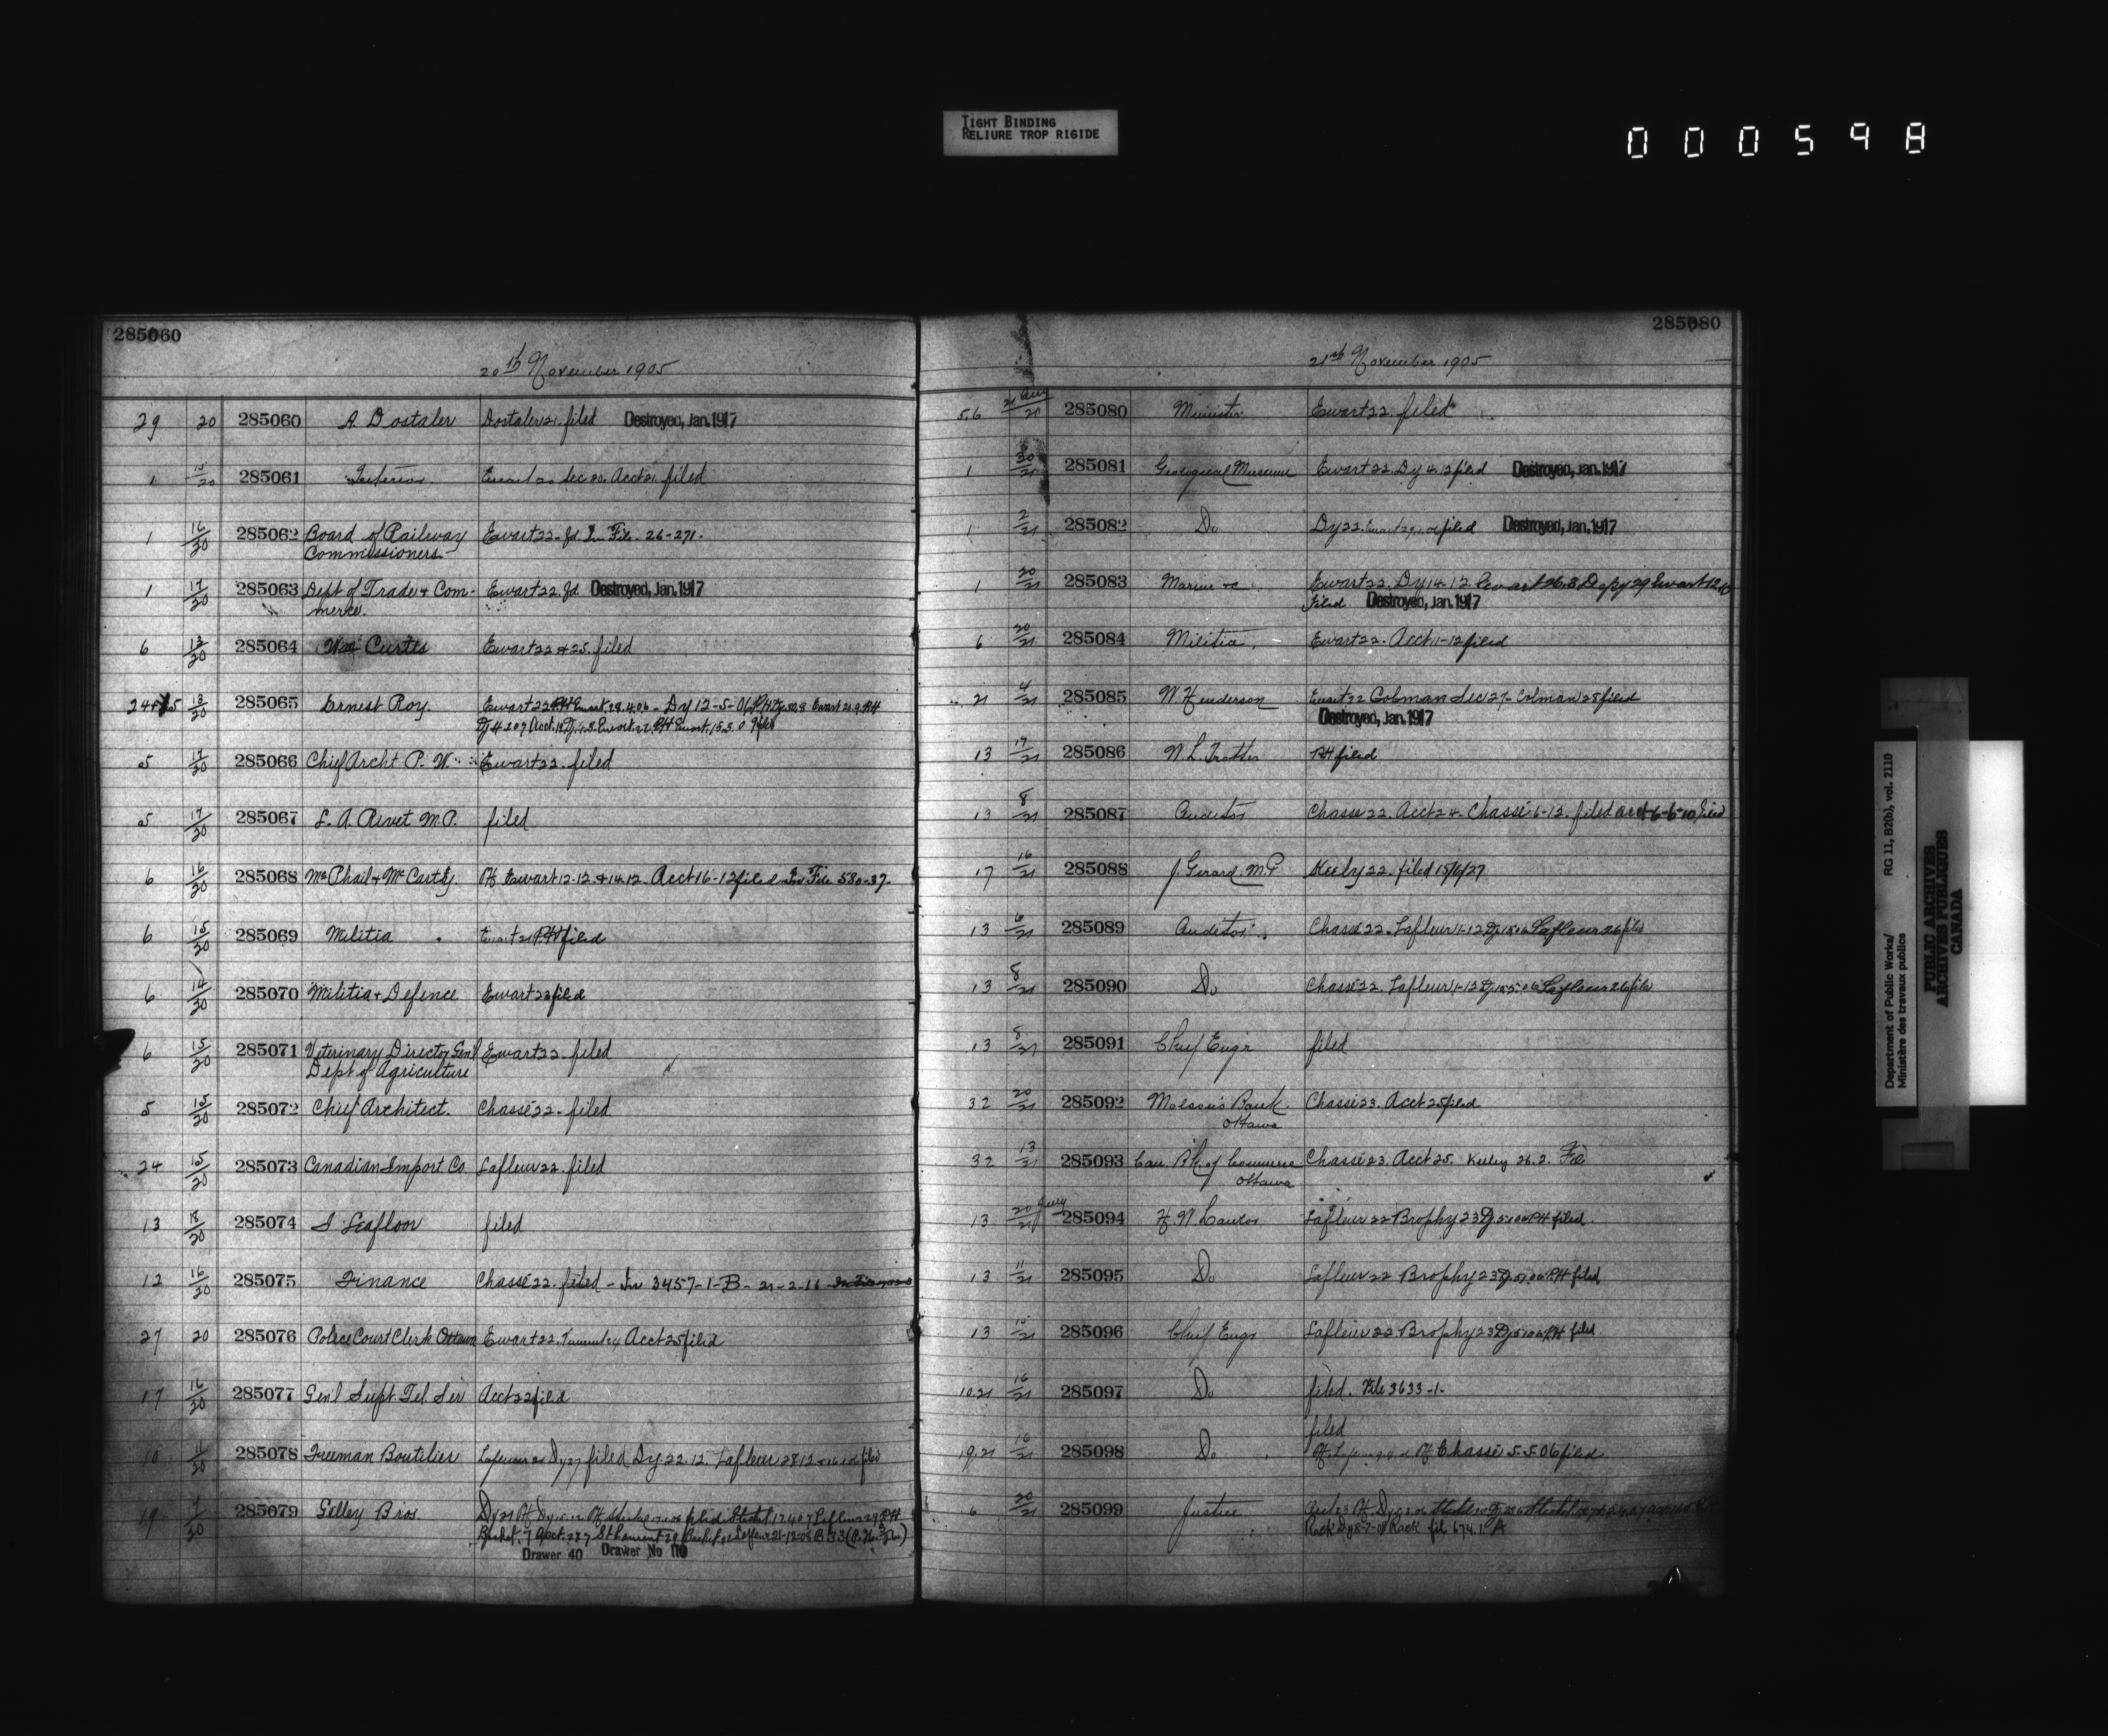 TIGHT BINDING
RELIURE TROP RIGIDE
000598
285060
20th November 1905
29 20 285060 A Dostaler Dostaler 21. filed Destroyed, Jan. 1917
1 15/20 285061 Interior Ewart 20 Sec 20. Acct 21. filed
1 16/20 285062 Board of Railway Ewart 22 - fd. In File - 26-271.
Commissioners
1 17/20 285063 Dept of Trade & Com- Ewart 22. fd Destroyed, Jan. 1917
merce.
6 13/20 285064 Wm Curtis Ewart 22 & 25. filed
13/20 285065 Ernest Roy. Ewart 22 Ewart 28.4.06 - Dy 12-5-06
5 17/20 285066 Chief Archt P. W. Ewart 22. filed
5 17/20 285067 L. A. Rivet M.P. filed
6 16/20 285068 McPhail & McCarty. Ewart 12-12 & 14.12. Acct 16-12 filed In File 580-37.
6 15/20 285069 Militia Ewart 21 filed
6 14/20 285070 Militia & Defence Ewart 22 filed
6 15/20 285071 Veterinary Director Genl Ewart 22. filed
Dept of Agriculture
5 15/20 285072 Chief Architect. Chassé 22 - filed
24 15/20 285073 Canadian Import Co. Lafleur 22. filed
13 18/20 285074 S Leafloor filed
12 16/20 285075 Finance Chassé 22. filed - In 3457-1-B - 21-2-16
27 20 285076 Police Court Clerk Ottawa Ewart 22. Acct 25 filed
17 16/20 285077 Genl Supt Tel. Ser Acct 22 filed
10 11/20 285078 Freeman Boutilier Lafleur 21 Dy 27 filed Dy 22.12. Lafleur 28 12 filed
19 285079 Gilley Bros
Drawer 40 Drawer No 110
285080
21st November 1905
5.6 285080 Minister Ewart 22. filed
1 20/21 285081 Geological Museum Ewart 22. Dy 4.12 filed Destroyed, Jan. 1917
1 2/21 285082 Do Dy 22. filed Destroyed, Jan. 1917
1 20/21 285083 Marine &c Ewart 22. Dy 14-12 Ewart 26.3
filed Destroyed, Jan. 1917
6 20/21 285084 Militia. Ewart 22 - Acct 11-12 filed
21 4/21 285085 W Henderson Ewart 22 Colman Sec 27 - Colman 28 filed
Destroyed, Jan. 1917
13 17/21 285086 N. L. Trotter filed
13 8/21 285087 Auditor Chassé 22. Acct 24 - Chassé 6-12. filed Acct 6-6-10 filed
17 16/21 285088 J. Gerard. M.P Keely 22. filed 15/6/27
13 6/21 285089 Auditor. Chassé 22. Lafleur 1-12 Lafleur 26 filed
13 8/21 285090 Do Chassé 22. Lafleur 1-12 Lafleur 26 filed
13 8/21 285091 Chief Engr filed
32 20/21 285092 Molsons Bank Chassé 23. Acct 25 filed
Ottawa
32 13/21 285093 Can. Bk of Commerce Chassé 23. Acct 25. Keeley 26.2.
Ottawa
13 285094 Lafleur 22 Brophy 23 filed.
13 11/21 285095 Do Lafleur 22 Brophy 23 filed
13 15/21 285096 Chief Engr Lafleur 22 Brophy 23 filed
10.21 16/21 285097 Do filed. File 3633-1-
filed
19.21 16/21 285098 Do Chassé 5.5.06 filed
6 20/21 285099 Justice
Department of Public Works/
Ministère des travaux publics
RG 11, B2(b), vol. 2110
PUBLIC ARCHIVES
ARCHIVES PUBLIQUES
CANADA